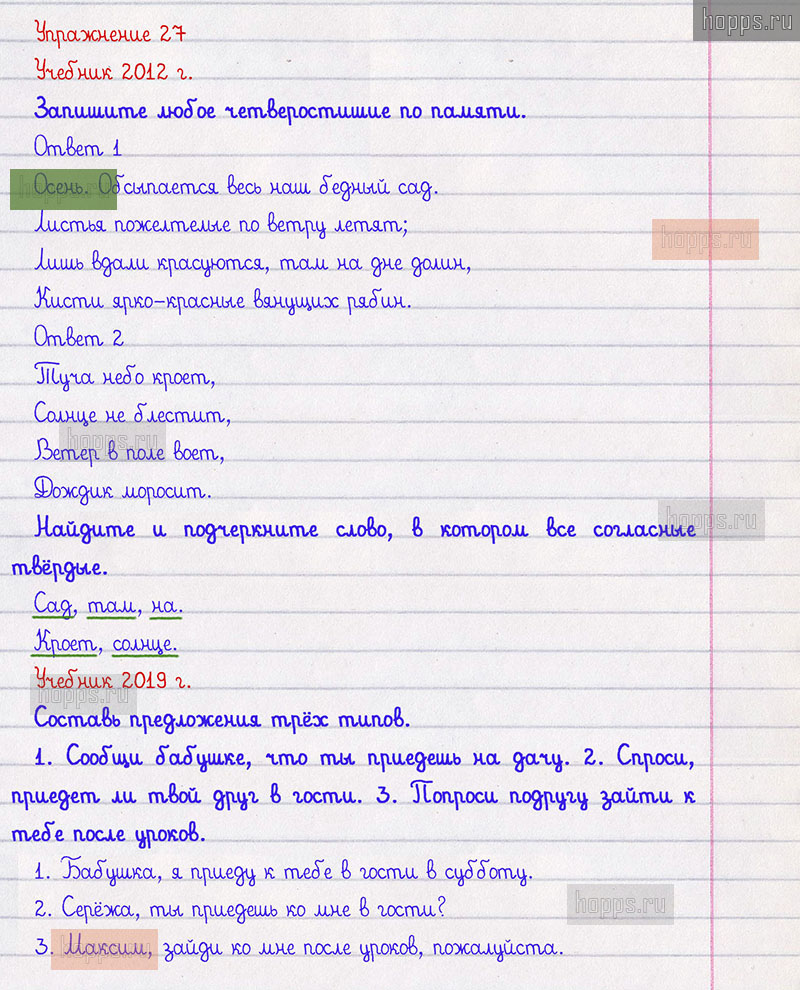 hopps.ru
Упражнение 27
Учебник 2012 г.
Запишите любое четверостишие по памяти.
Ответ 1
Осень. Обсыпается весь наш бедный сад.
Листья пожелтелые по ветру летят;
hopps.ru
Лишь вдали красуются, там на дне долин,
Кисти ярко-красные вянущих рябин.
Ответ 2
Туча небо кроет,
Солнце не блестит,
hopps.ru
Ветер в поле воет,
Дождик моросит.
hopps.ru
Найдите и подчеркните слово, в котором все согласные
твёрдые.
Сад, там, на.
Кроет, солнце.
Учебник 2019 г.
hopps.ru
Составь предложения трёх типов.
1. Сообщи бабушке, что ты приедешь на дачу. 2. Спроси,
приедет ли твой друг в гости. 3. Попроси подругу зайти к
тебе после уроков.
1. Бабушка, я приеду к тебе в гости в субботу.
2. Серёжа, ты приедешь ко мне в гости?
hopps.ru
3. Максим, зайди ко мне после уроков, пожалуйста.